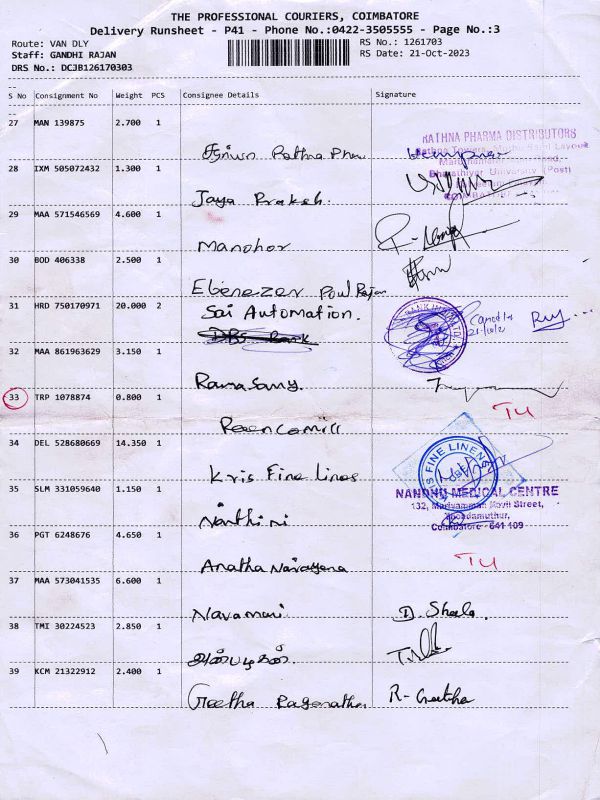 THE PROFESSIONAL COURIERS, COIMBATORE
Delivery Runsheet - P41 - Phone No.:0422-3505555 - Page No.:3
Route: VAN DLY
RS No.: 1261703
Staff: GANDHI RAJAN
RS Date: 21-Oct-2023
DRS No.: DCJB126170303
S No Consignment No Weight PCS Consignee Details Signature
27 MAN 139875 2.700 1
Rathna
RATHNA PHARMA DISTRIBUTORS
28 IXM 505072432 1.300 1
Bharathiyar University (Post)
Jaya Prakash.
29 MAA 571546569 4.600 1
Manohor
30 BOD 406338 2.500 1
Ebenezer Powl Rajan
31 HRD 750170971 20.000 2 Sai Automation.
DBS Bank
32 MAA 861963629 3.150 1
Ramasamy.
33 TRP 1078874 0.800 1
34 DEL 528680669 14.350 1
Kris Fine Lines
FINE LINENS
35 SLM 331059640 1.150 1
NANDHU MEDICAL CENTRE
132, Mariyamman Kovil Street,
Thondamuthur,
Coimbatore - 641 109
Nanthini
36 PGT 6248676 4.650 1
Anatha Narayana
37 MAA 573041535 6.600 1
Navamani D. Sheela.
38 TMI 30224523 2.850 1
39 KCM 21322912 2.400 1
Geetha Ragonathan R- Geetha